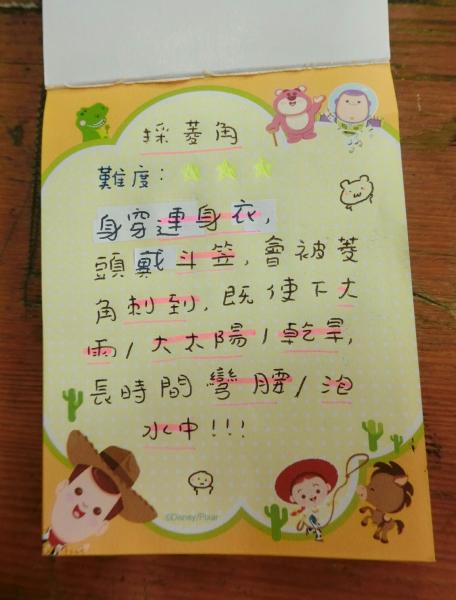 採菱角
難度：☆ ☆ ☆
身穿連身衣,
頭戴斗笠,會被菱
角刺到,既使下大
雨/大太陽/乾旱,
長時間彎腰/泡
水中!!!
©Disney/Pixar